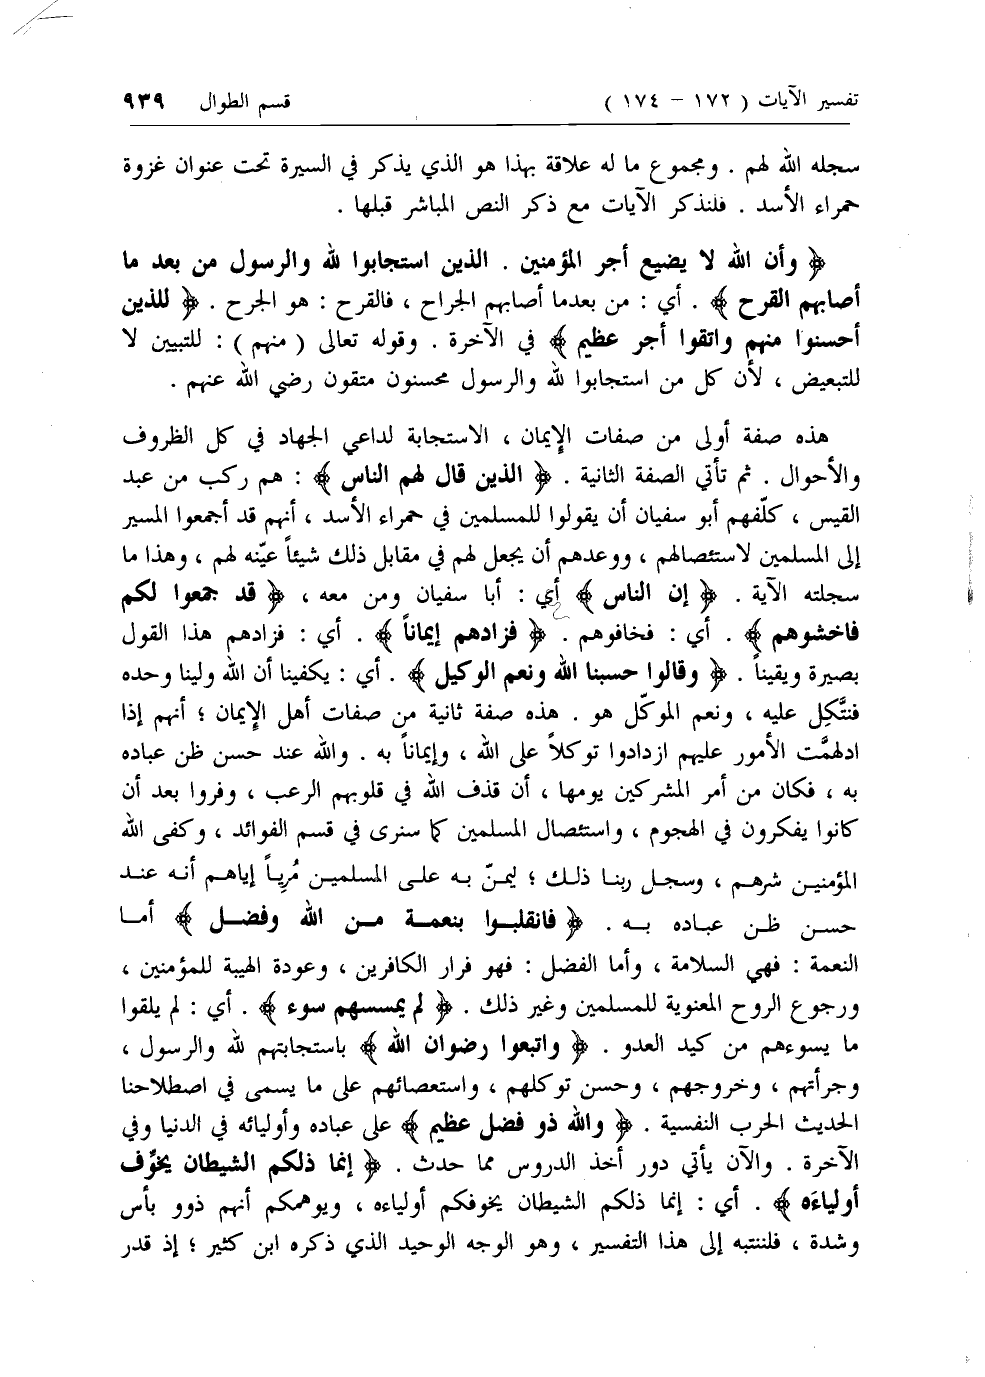 تفسير الآيات ( ١٧٢ – ١٧٤ ) قسم الطوال ٩٣٩
سجله الله لهم . ومجموع ما له علاقة بهذا هو الذي يذكر في السيرة تحت عنوان غزوة
حمراء الأسد . فلنذكر الآيات مع ذكر النص المباشر قبلها .
﴿ وأن الله لا يضيع أجر المؤمنين . الذين استجابوا لله والرسول من بعد ما
أصابهم القرح ﴾ . أي : من بعدما أصابهم الجراح ، فالقرح : هو الجرح . ﴿ للذين
أحسنوا منهم واتقوا أجر عظيم ﴾ في الآخرة . وقوله تعالى ( منهم ) : للتبيين لا
للتبعيض ، لأن كل من استجابوا لله والرسول محسنون متقون رضي الله عنهم .
هذه صفة أولى من صفات الإيمان ، الاستجابة لداعي الجهاد في كل الظروف
والأحوال . ثم تأتي الصفة الثانية . ﴿ الذين قال لهم الناس ﴾ : هم ركب من عبد
القيس ، كلّفهم أبو سفيان أن يقولوا للمسلمين في حمراء الأسد ، أنهم قد أجمعوا المسير
إلى المسلمين لاستئصالهم ، ووعدهم أن يجعل لهم في مقابل ذلك شيئاً عيّنه لهم ، وهذا ما
سجلته الآية . ﴿ إن الناس ﴾ أي : أبا سفيان ومن معه ، ﴿ قد جمعوا لكم
فاخشوهم ﴾ . أي : فخافوهم . ﴿ فزادهم إيماناً ﴾ . أي : فزادهم هذا القول
بصيرة ويقيناً . ﴿ وقالوا حسبنا الله ونعم الوكيل ﴾ . أي : يكفينا أن الله ولينا وحده
فنتَّكِل عليه ، ونعم الموكّل هو . هذه صفة ثانية من صفات أهل الإيمان ؛ أنهم إذا
ادلهمَّت الأمور عليهم ازدادوا توكلاً على الله ، وإيماناً به . والله عند حسن ظن عباده
به ، فكان من أمر المشركين يومها ، أن قذف الله في قلوبهم الرعب ، وفروا بعد أن
كانوا يفكرون في الهجوم ، واستئصال المسلمين كما سنرى في قسم الفوائد ، وكفى الله
المؤمنين شرهم ، وسجل ربنا ذلك ؛ ليمنّ به على المسلمين مُرِياً إياهم أنه عند
حسن ظن عباده به . ﴿ فانقلبوا بنعمة من الله وفضل ﴾ أما
النعمة : فهي السلامة ، وأما الفضل : فهو فرار الكافرين ، وعودة الهيبة للمؤمنين ،
ورجوع الروح المعنوية للمسلمين وغير ذلك . ﴿ لم يمسسهم سوء ﴾ . أي : لم يلقوا
ما يسوءهم من كيد العدو . ﴿ واتبعوا رضوان الله ﴾ باستجابتهم لله والرسول ،
وجرأتهم ، وخروجهم ، وحسن توكلهم ، واستعصائهم على ما يسمى في اصطلاحنا
الحديث الحرب النفسية . ﴿ والله ذو فضل عظيم ﴾ على عباده وأوليائه في الدنيا وفي
الآخرة . والآن يأتي دور أخذ الدروس مما حدث . ﴿ إنما ذلكم الشيطان يخوِّف
أولياءَه ﴾ . أي : إنما ذلكم الشيطان يخوفكم أولياءه ، ويوهمكم أنهم ذوو بأس
وشدة ، فلننتبه إلى هذا التفسير ، وهو الوجه الوحيد الذي ذكره ابن كثير ؛ إذ قدر